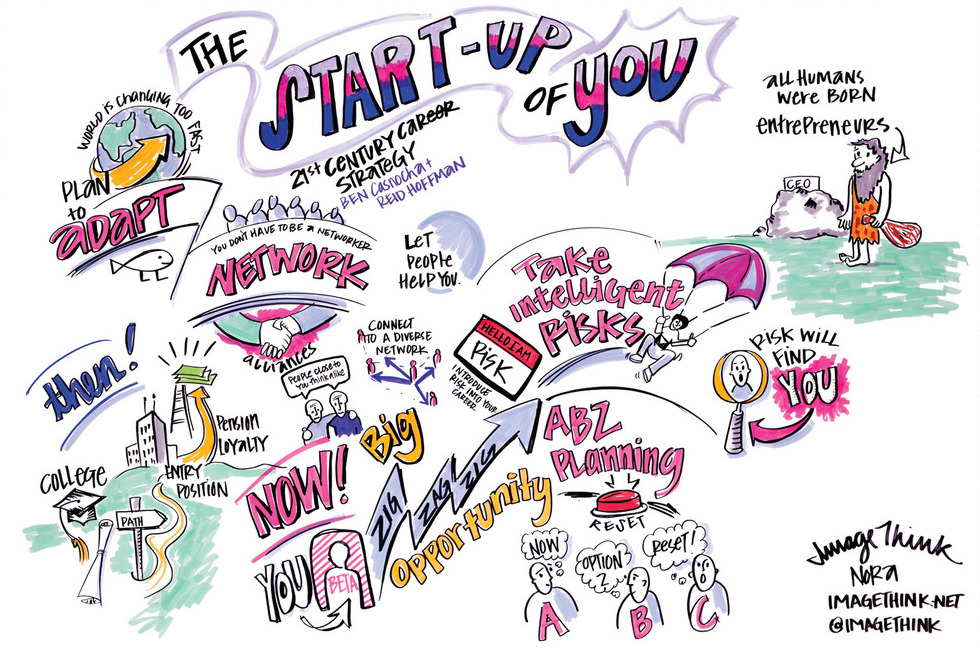 THE
START-UP
OF YOU
21st CENTURY CAREER
STRATEGY
BEN Casnocha +
REID HOFFMAN
WORLD is CHANGING TOO FAST
PLAN
to
ADAPT
YOU DON'T HAVE TO BE A NETWORKER
NETWORK
alliances
LET
PEOPLE
HELP YOU.
CONNECT
TO A DIVERSE
NETWORK
People close to
you think alike
Take
intelligent
RISKS
HELLO I AM
RISK
INTRODUCE
RISK INTO YOUR
CAREER
all HUMANS
WERE BORN
entrepreneurs
CEO
RISK WILL
FIND
YOU
then!
PENSION
LOYALTY
ENTRY
POSITION
COLLEGE
PATH
NOW!
YOU
BETA
Big
ZIG
ZAG
ZIG
OPPORTUNITY
ABZ
Planning
RESET
NOW
OPTION
2
RESET!
A
B
C
ImageThink
NORA
IMAGETHINK.NET
@IMAGETHINK